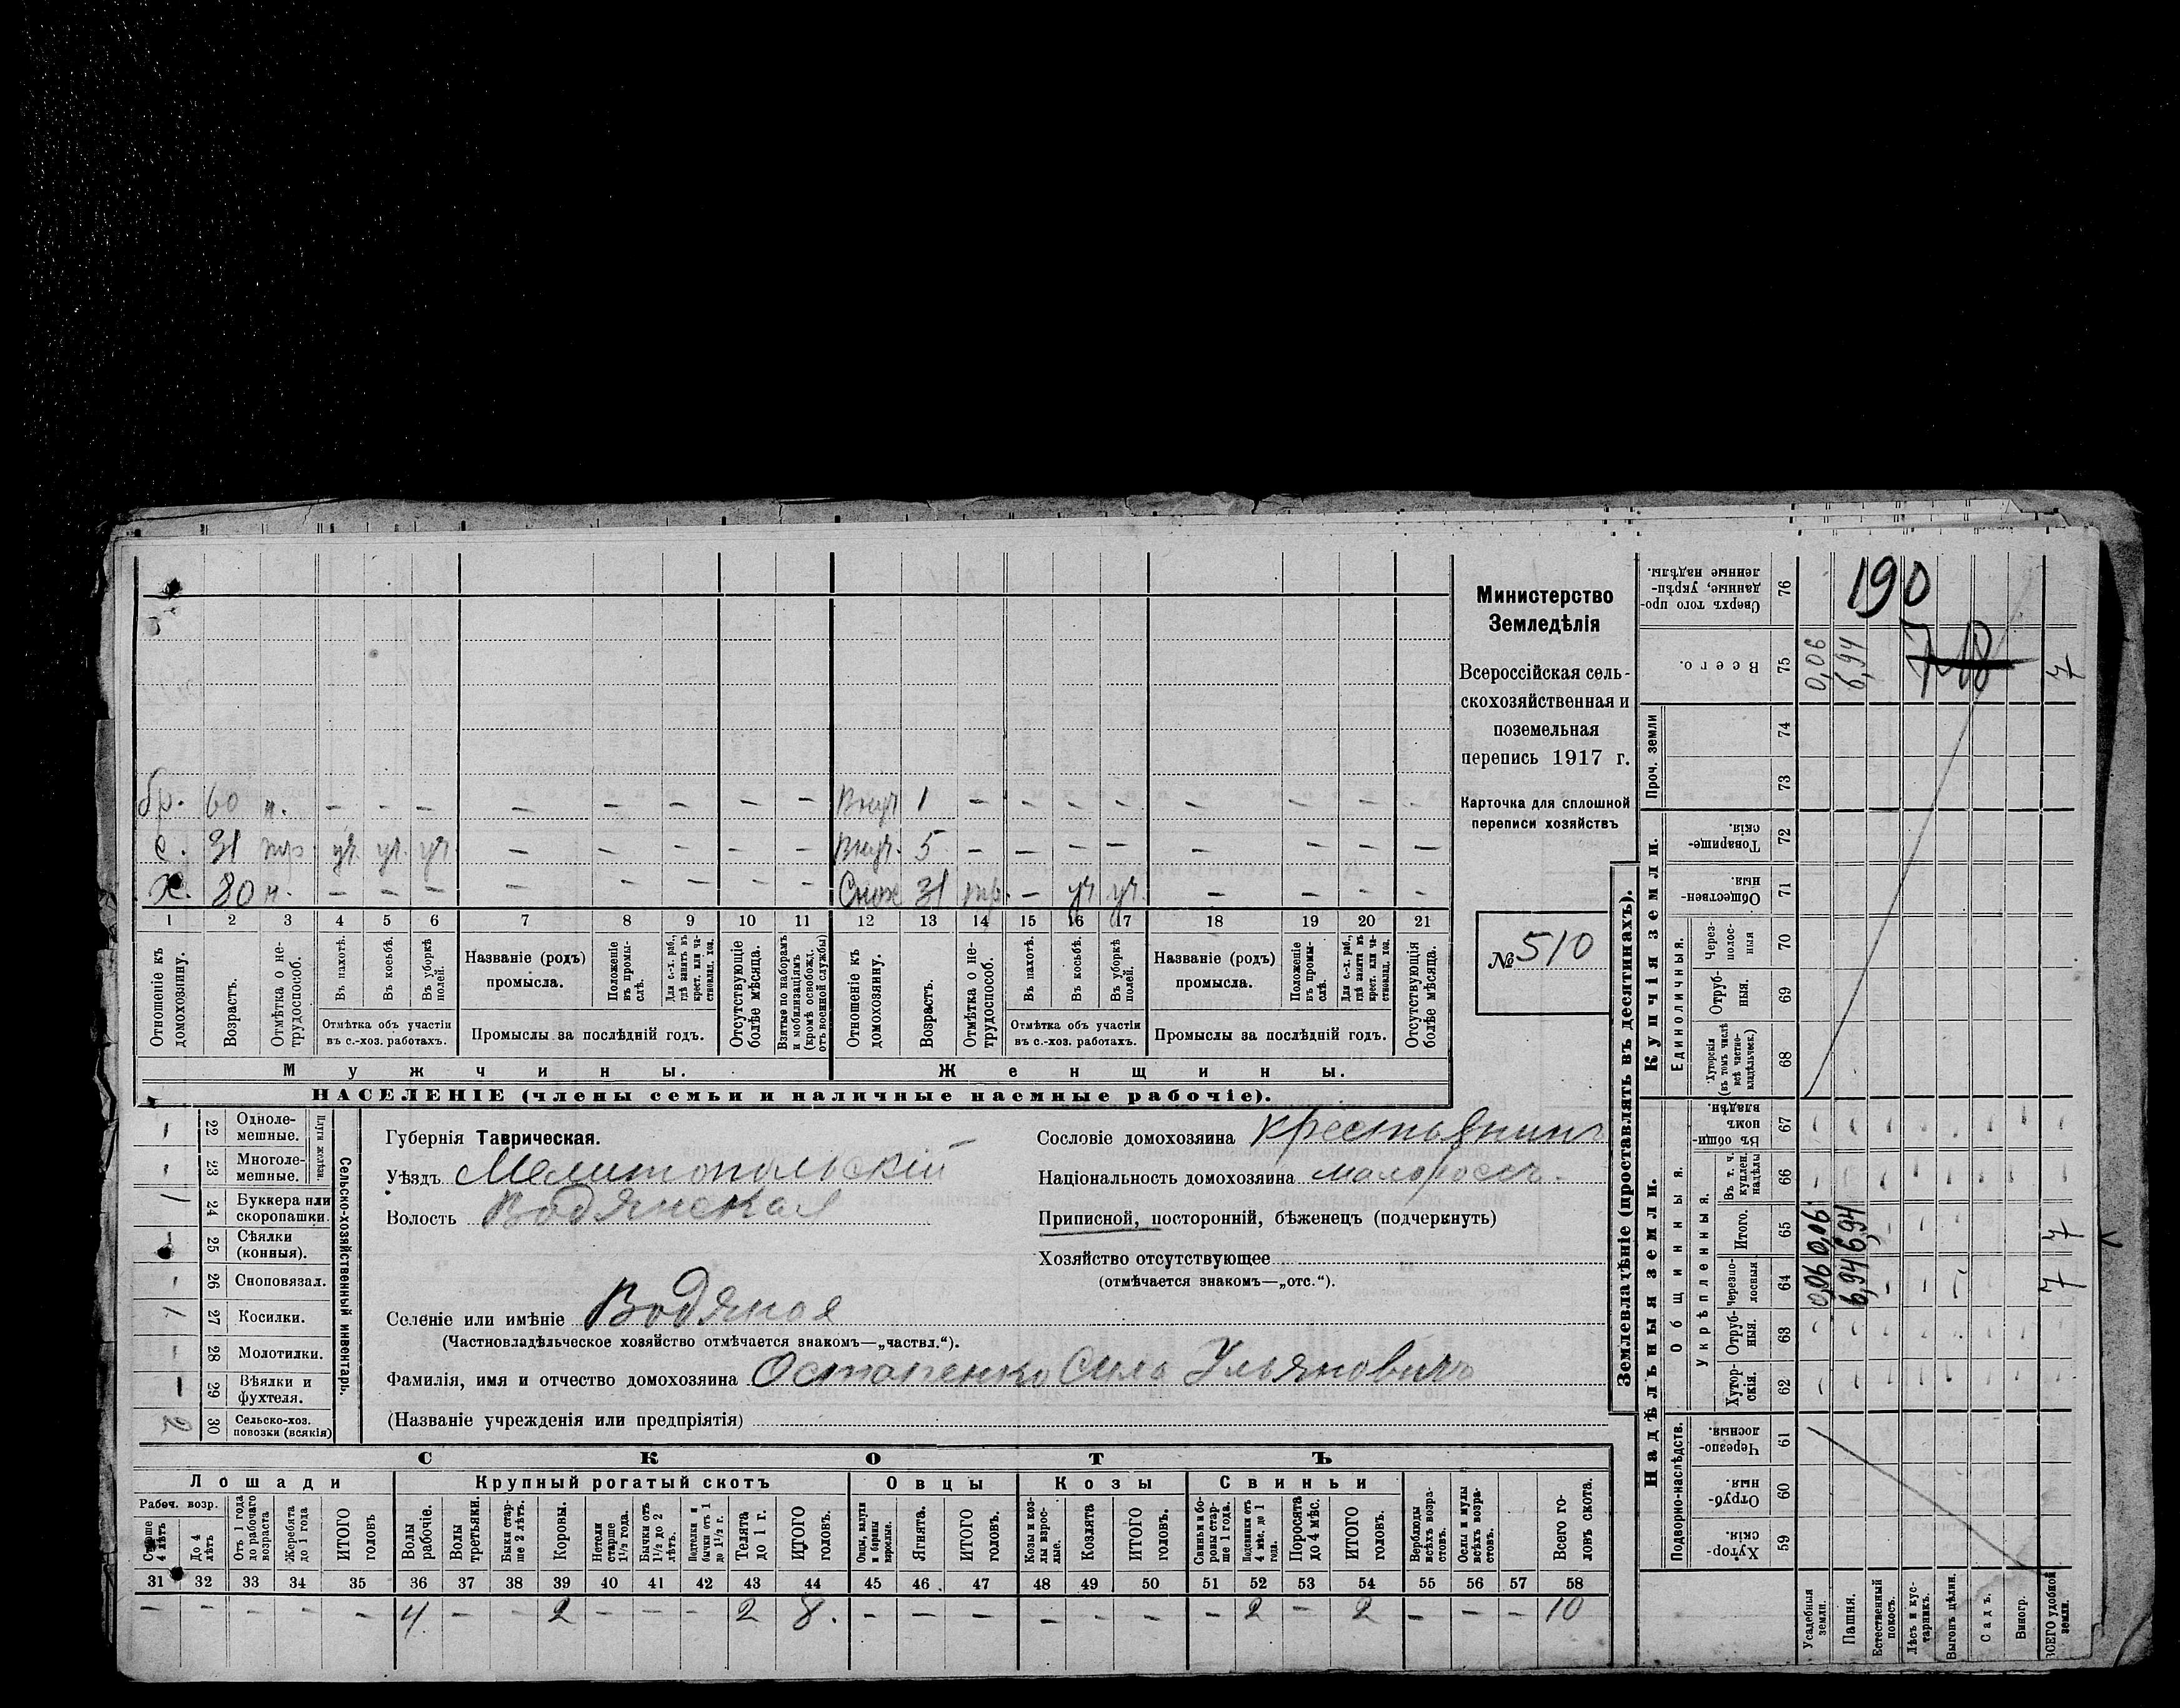 Министерство
Земледѣлія
Всероссійская сель-
скохозяйственная и
поземельная
перепись 1917 г.
Карточка для сплошной
переписи хозяйствъ
№ 510
бр. 60 н. – – – – – – – – Внуч. 1 – – – – – – – –
с. 31 тр. уч. уч. уч. – – – – – Внуч. 5 – – – – – – – –
х. 80 н. – – – – – – – – Снох. 31 тр. – уч. уч. – – – –
1 2 3 4 5 6 7 8 9 10 11 12 13 14 15 16 17 18 19 20 21
Отношеніе къ домохозяину.
Возрастъ.
Отмѣтка о не-трудоспособ.
Въ пахотѣ.
Въ косьбѣ.
Въ уборкѣ полей.
Отмѣтка объ участіи въ с.-хоз. работахъ.
Названіе (родъ) промысла.
Положеніе въ промы-слѣ.
Для с.-х. раб., гдѣ занятъ въ крест. или ча-стновлад. хоз.
Промыслы за послѣдній годъ.
Отсутствующіе болѣе мѣсяца.
Взятые по наборамъ и мобилизаціямъ (кромѣ освобожд. отъ военной службы)
Отношеніе къ домохозяину.
Возрастъ.
Отмѣтка о не-трудоспособ.
Въ пахотѣ.
Въ косьбѣ.
Въ уборкѣ полей.
Отмѣтка объ участіи въ с.-хоз. работахъ.
Названіе (родъ) промысла.
Положеніе въ промы-слѣ.
Для с.-х. раб., гдѣ занята въ крест. или ча-стновлад. хоз.
Промыслы за послѣдній годъ.
Отсутствующія болѣе мѣсяца.
Мужчины. Женщины.
НАСЕЛЕНІЕ (члены семьи и наличные наемные рабочіе).
Сельско-хозяйственный инвентарь.
Плуги желѣзн.
– 22 Одноле-мешные.
– 23 Многоле-мешные.
/ 24 Буккера или скоропашки.
– 25 Сѣялки (конныя).
– 26 Сноповязал.
/ 27 Косилки.
– 28 Молотилки.
– 29 Вѣялки и фухтеля.
2 30 Сельско-хоз. повозки (всякія)
Губернія Таврическая.
Уѣздъ Мелитопольскій
Волость Водянская
Селеніе или имѣніе Водяная
(Частновладѣльческое хозяйство отмѣчается знакомъ—„частвл.“).
Фамилія, имя и отчество домохозяина Остапенко Сила Ульяновичъ
(Названіе учрежденія или предпріятія)
Сословіе домохозяина крестьянинъ
Національность домохозяина малороссъ.
Приписной, посторонній, бѣженецъ (подчеркнуть)
Хозяйство отсутствующее
(отмѣчается знакомъ—„отс.“).
СКОТЪ
Лошади Крупный рогатый скотъ Овцы Козы Свиньи
Рабоч. возр.
Старше 4 лѣтъ
До 4 лѣтъ
Отъ 1 года до рабочаго возраста
Жеребята до 1 года
ИТОГО головъ
Волы рабочіе.
Волы третьяки.
Быки стар-ше 2 лѣтъ.
Коровы.
Нетели старше 1½ года.
Бычки отъ 1½ до 2 лѣтъ.
Подтелки и бычки отъ 1 до 1½ г.
Телята до 1 г.
ИТОГО головъ.
Овцы, валухи и бараны взрослые.
Ягнята.
ИТОГО головъ.
Козы и коз-лы взрос-лые.
Козлята
ИТОГО головъ.
Свиньи и бо-ровы стар-ше 1 года.
Подсвинки отъ 4 мѣс. до 1 года.
Поросята до 4 мѣс.
ИТОГО головъ.
Верблюды всѣхъ возра-стовъ.
Ослы и мулы всѣхъ возра-стовъ.
Всего го-ловъ скота.
31 32 33 34 35 36 37 38 39 40 41 42 43 44 45 46 47 48 49 50 51 52 53 54 55 56 57 58
– – – – – 4 – – 2 – – – 2 8. – – – – – – – 2 – 2 – – – 10
Землевладѣніе (проставлять въ десятинахъ).
Надѣльныя земли.
Купчія земли.
Проч. земли
Подворно-наслѣдств.
Общинныя.
Укрѣпленныя.
Единоличныя.
Сверхъ того про-данные, укрѣп-ленные надѣлы. 76
Всего. 75
74
73
Товарище-скія. 72
Обществен-ныя. 71
Через-полос-ныя 70
Отруб-ныя. 69
Хуторскія (въ томъ числѣ всѣ частно-владѣльческ.) 68
Въ общи-номъ владѣн. 67
Въ т. ч. куплен. надѣлы 66
Итого. 65
Черезпо-лосныя 64
Отруб-ныя. 63
Хутор-скія. 62
Черезпо-лосныя. 61
Отруб-ныя. 60
Хутор-скія. 59
Усадебныя земли.
Пашня.
Естественный покосъ.
Лѣсъ и кус-тарникъ.
Выгонъ цѣлин.
Садъ.
Виногр.
ВСЕГО удобной земли.
190
0,06
6,94
7
0,06 0,06
6,94 6,94
7 7